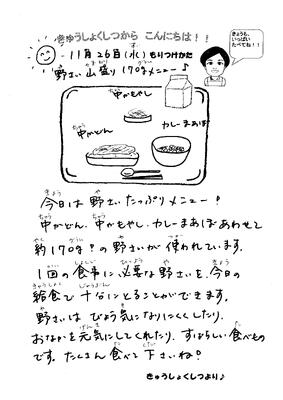 きゅうしょくしつから こんにちは！！
11月26日(水) もりつけかた
野さい山盛り170gメニュー♪
きょうも、
いっぱい
たべてね！！
中かもやし
中かどん
カレーまあぼ
今日は 野さいたっぷりメニュー！
中かどん、中かもやし、カレーまあぼあわせて
約170g？の野さいが使われています。
1回の食事に必要な野さいを、今日の
給食で十分にとることができます。
野さいは びょう気になりにくくしたり、
おなかを元気にしてくれたり、すばらしい食べもの
です。たくさん食べて下さいね♡
きゅうしょくしつより♪